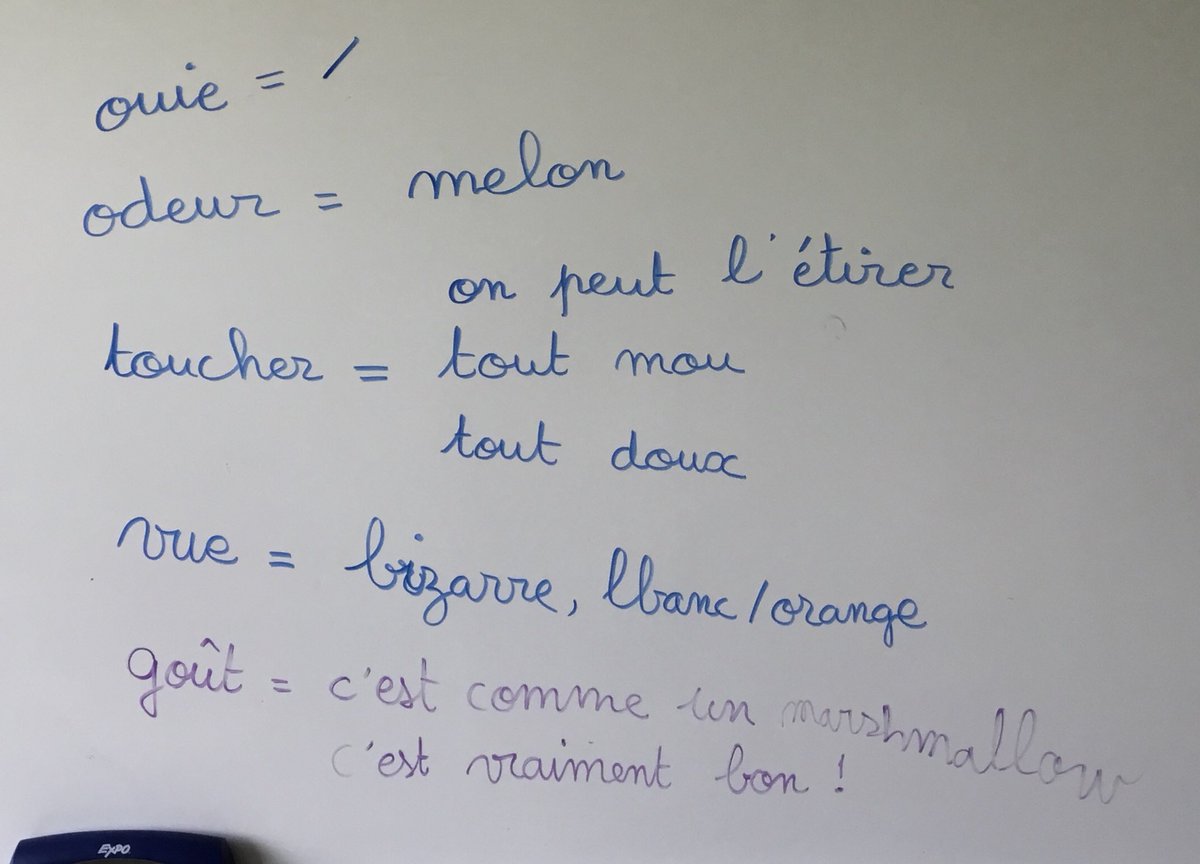 ouie = /
odeur = melon
on peut l'étirer
toucher = tout mou
tout doux
vue = bizarre, lbanc/orange
goût = c'est comme un marshmallow
c'est vraiment bon !
EXPO